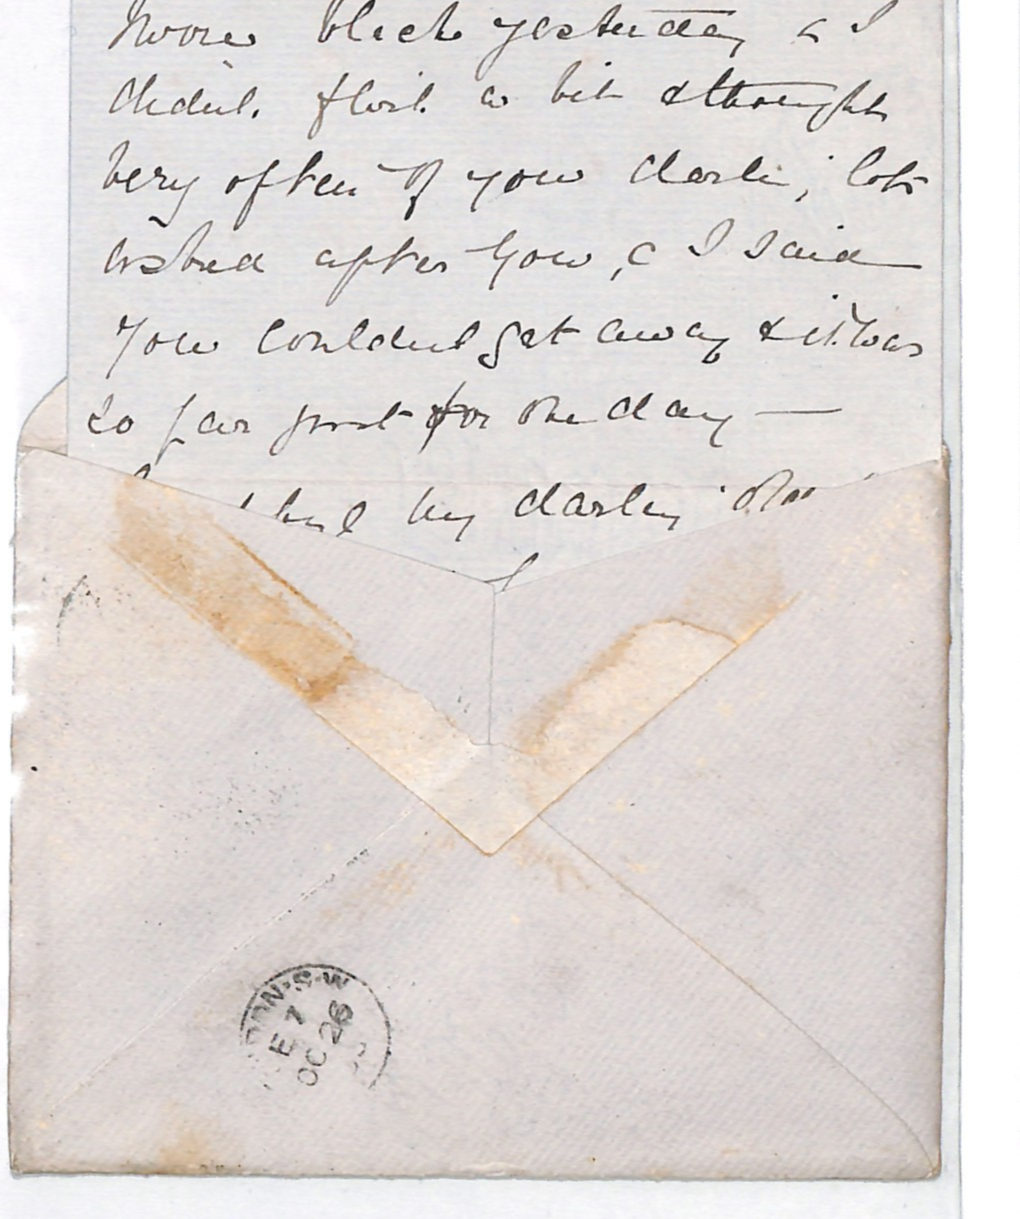 I wore black yesterday & I
didn't flirt a bit & thought
very often of you darlin', lots
asked after you, & I said
you couldn't get away & it was
so far just for the day —
my darling
LONDON·S·W
E 7
OC 26